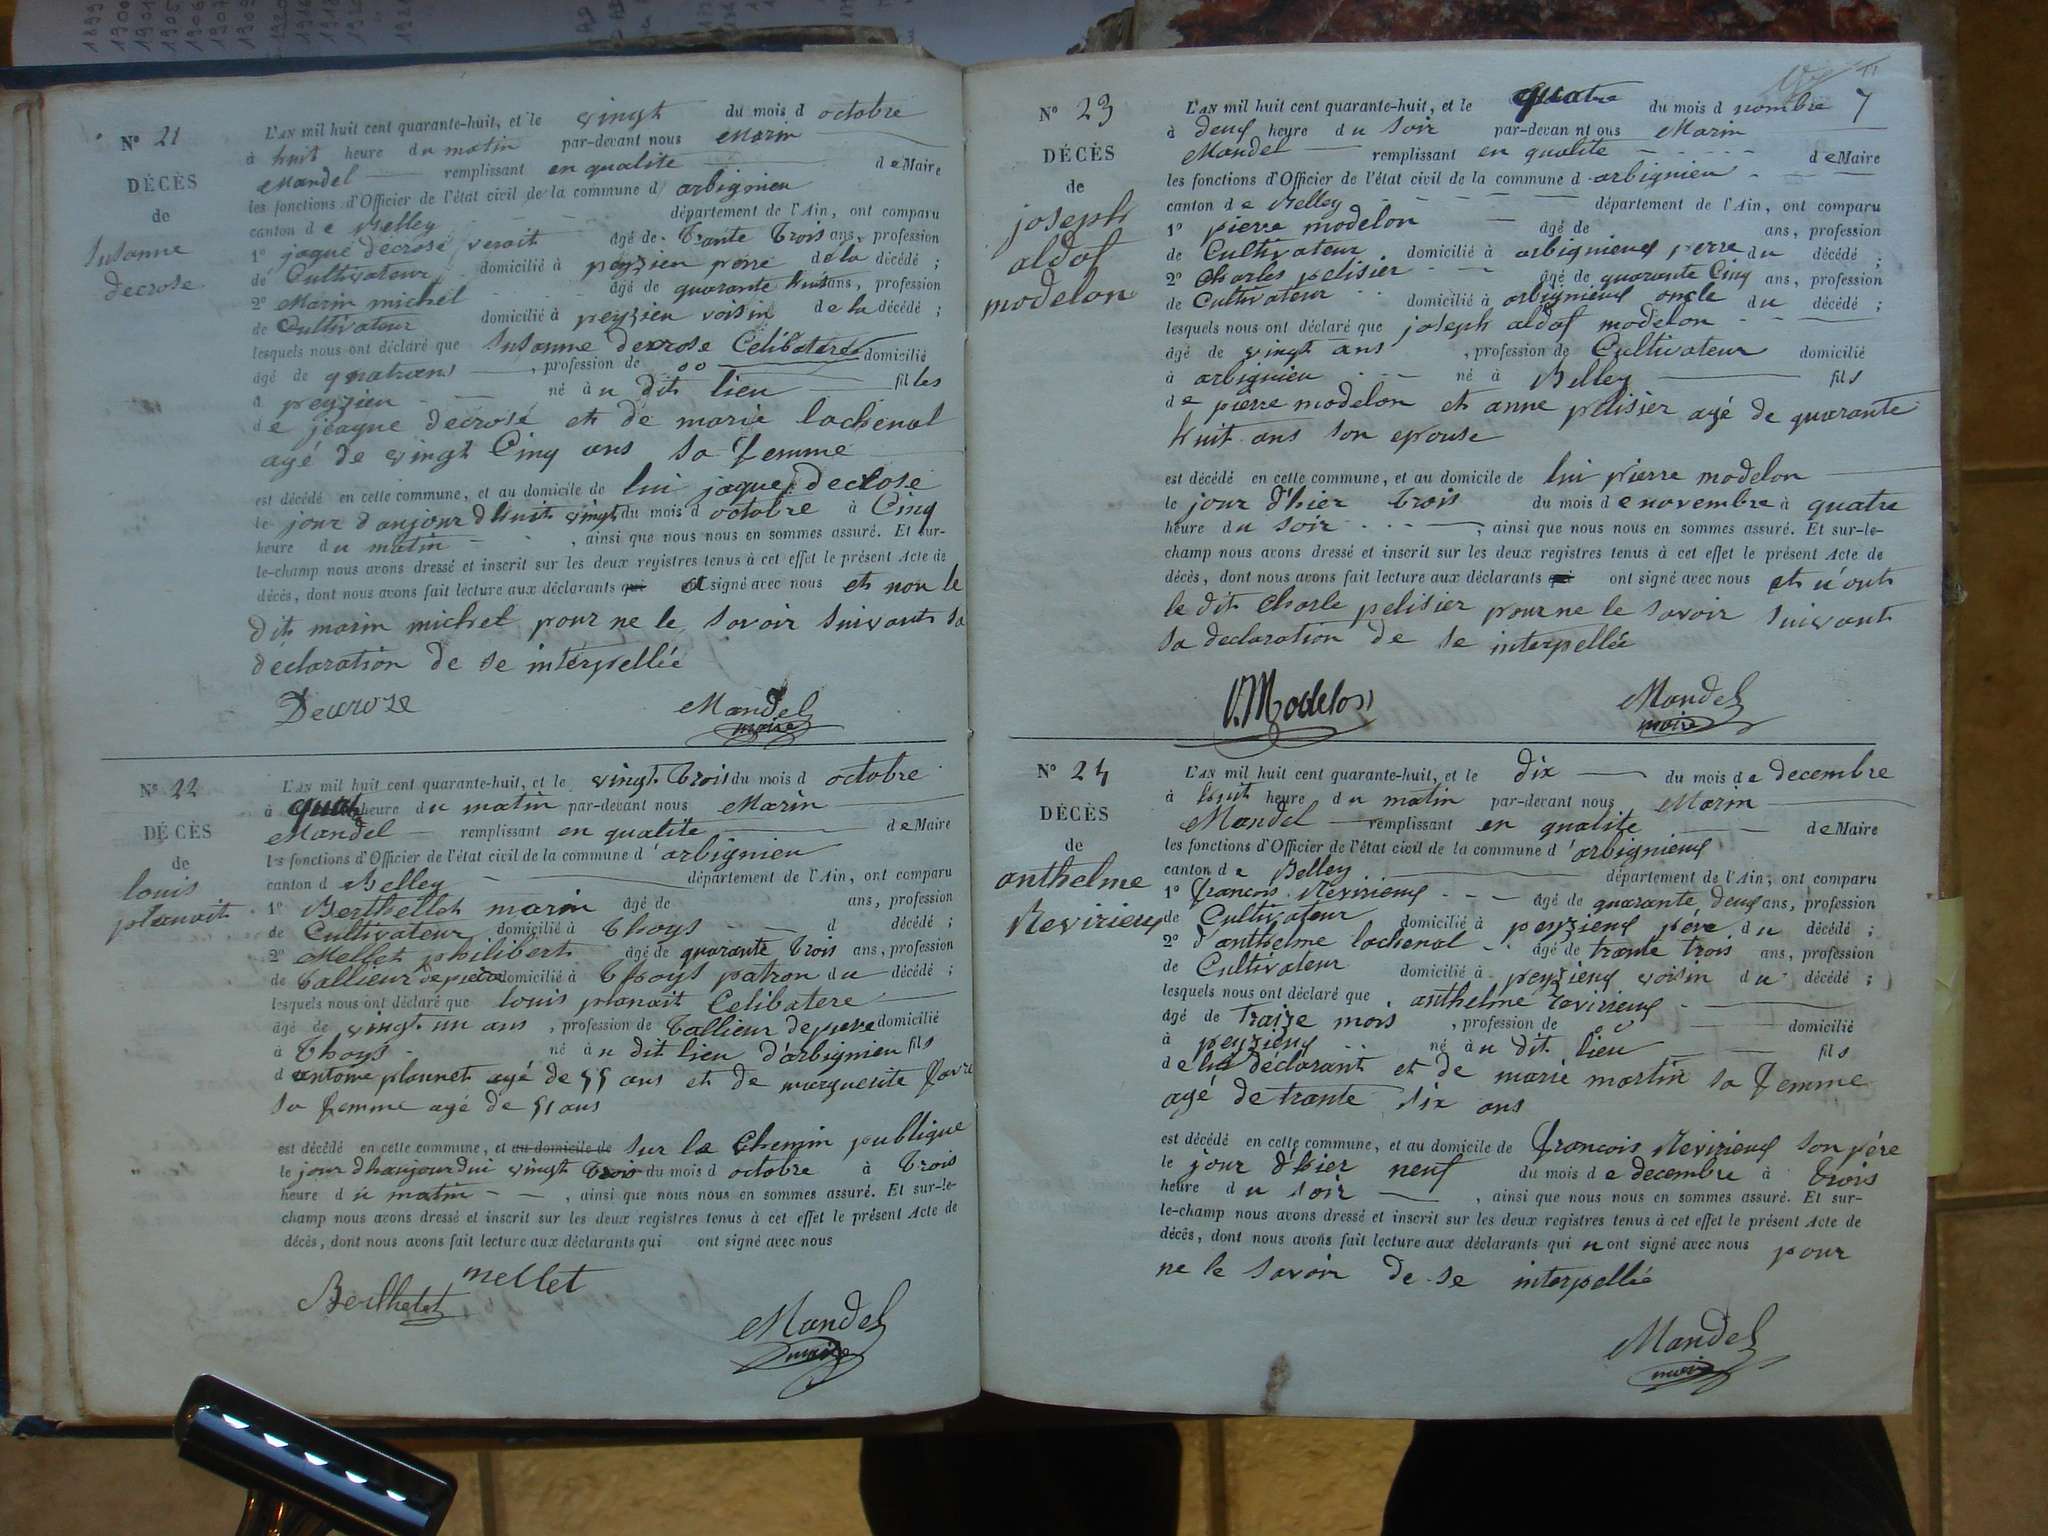 N° 21
DÉCÈS
de
Susanne
decrose
L'AN mil huit cent quarante-huit, et le vingt du mois d octobre
à huit heure du matin par-devant nous Marin
Mandel remplissant en qualite de Maire
les fonctions d'Officier de l'état civil de la commune d'arbignieu
canton de Belley département de l'Ain, ont comparu
1° jaque decrose âgé de trante trois ans, profession
de Cultivateur domicilié à peyzieu perre de la décédé ;
2° Marin michel âgé de quarante huit ans, profession
de Cultivateur domicilié à peyzieu voisin de la décédé ;
lesquels nous ont déclaré que Susanne decrose Celibatere
âgé de quatrans , profession de domicilié
à peyzieu né àu dit lieu filles
de jeaque decrose et de marie lachenal
agé de vingt Cinq ans sa femme
est décédé en cette commune, et au domicile de lui jaque declose
le jour d'aujour dhuit vingt du mois d octobre à Cinq
heure du matin , ainsi que nous nous en sommes assuré. Et sur-
le-champ nous avons dressé et inscrit sur les deux registres tenus à cet effet le présent Acte de
décès, dont nous avons fait lecture aux déclarants qui ot signé avec nous et non le
dit marin michel pour ne le savoir suivant sa
déclaration de se interpellée
Decroze Mandel
maire
N° 22
DÉCÈS
de
louis
planait
L'AN mil huit cent quarante-huit, et le vingt trois du mois d octobre
à quat heure du matin par-devant nous Marin
Mandel remplissant en qualite de Maire
les fonctions d'Officier de l'état civil de la commune d'arbignieu
canton d Belley département de l'Ain, ont comparu
1° Berthellot marin âgé de ans, profession
de Cultivateur domicilié à thoys d décédé ;
2° Mellet philibert âgé de quarante trois ans, profession
de tallieur de pierre domicilié à thoys patron du décédé ;
lesquels nous ont déclaré que louis planait Celibatere
âgé de vingt un ans , profession de tallieur de piere domicilié
à thoys né àu dit lieu d'arbignieu fils
d antoine planet agé de 55 ans et de marguerite favre
sa femme agé de 51 ans
est décédé en cette commune, et au domicile de sur le Chemin publique
le jour dhaujourdui vingt trois du mois d octobre à trois
heure du matin , ainsi que nous nous en sommes assuré. Et sur-le-
champ nous avons dressé et inscrit sur les deux registres tenus à cet effet le présent Acte de
décès, dont nous avons fait lecture aux déclarants qui ont signé avec nous
Berthelet mellet
Mandel
maire
7
N° 23
DÉCÈS
de
joseph
aldof
modelon
L'AN mil huit cent quarante-huit, et le quatre du mois d nombre
à deux heure du soir par-devan nt ous Marin
Mandel remplissant en qualite de Maire
les fonctions d'Officier de l'état civil de la commune d arbignieu
canton de Belley département de l'Ain, ont comparu
1° pierre modelon âgé de ans, profession
de Cultivateur domicilié à arbignieux perre du décédé ;
2° Charles pelisier âgé de quarante Cinq ans, profession
de Cultivateur domicilié à arbignieux oncle du décédé ;
lesquels nous ont déclaré que joseph aldof modelon
âgé de vingt ans , profession de Cultivateur domicilié
à arbignieu né à Belley fils
de pierre modelon et anne pelisier agé de quarante
huit ans son epouse
est décédé en cette commune, et au domicile de lui pierre modelon
le jour d'hier trois du mois de novembre à quatre
heure du soir , ainsi que nous nous en sommes assuré. Et sur-le-
champ nous avons dressé et inscrit sur les deux registres tenus à cet effet le présent Acte de
décès, dont nous avons fait lecture aux déclarants qui ont signé avec nous et n'ont
le dit Charle pelisier pour ne le savoir suivant
sa declaration de se interpellée
Modelon Mandel
maire
N° 24
DÉCÈS
de
anthelme
Revirieux
L'AN mil huit cent quarante-huit, et le dix du mois de decembre
à huit heure du matin par-devant nous Marin
Mandel remplissant en qualite de Maire
les fonctions d'Officier de l'état civil de la commune d'arbignieux
canton de Belley département de l'Ain, ont comparu
1° francois Revirieux âgé de quarante deux ans, profession
de Cultivateur domicilié à peyzieux père du décédé ;
2° d'anthelme lachenal âgé de trante trois ans, profession
de Cultivateur domicilié à peyzieux voisin du décédé ;
lesquels nous ont déclaré que anthelme revirieux
âgé de traize mois , profession de domicilié
à peyzieux né àu dit lieu fils
de lui déclarant et de marie martin sa femme
agé de trante six ans
est décédé en cette commune, et au domicile de francois Revirieux son père
le jour d'hier neuf du mois de decembre à trois
heure du soir , ainsi que nous nous en sommes assuré. Et sur-
le-champ nous avons dressé et inscrit sur les deux registres tenus à cet effet le présent Acte de
décès, dont nous avons fait lecture aux déclarants qui n ont signé avec nous pour
ne le savoir de se interpellée
Mandel
maire